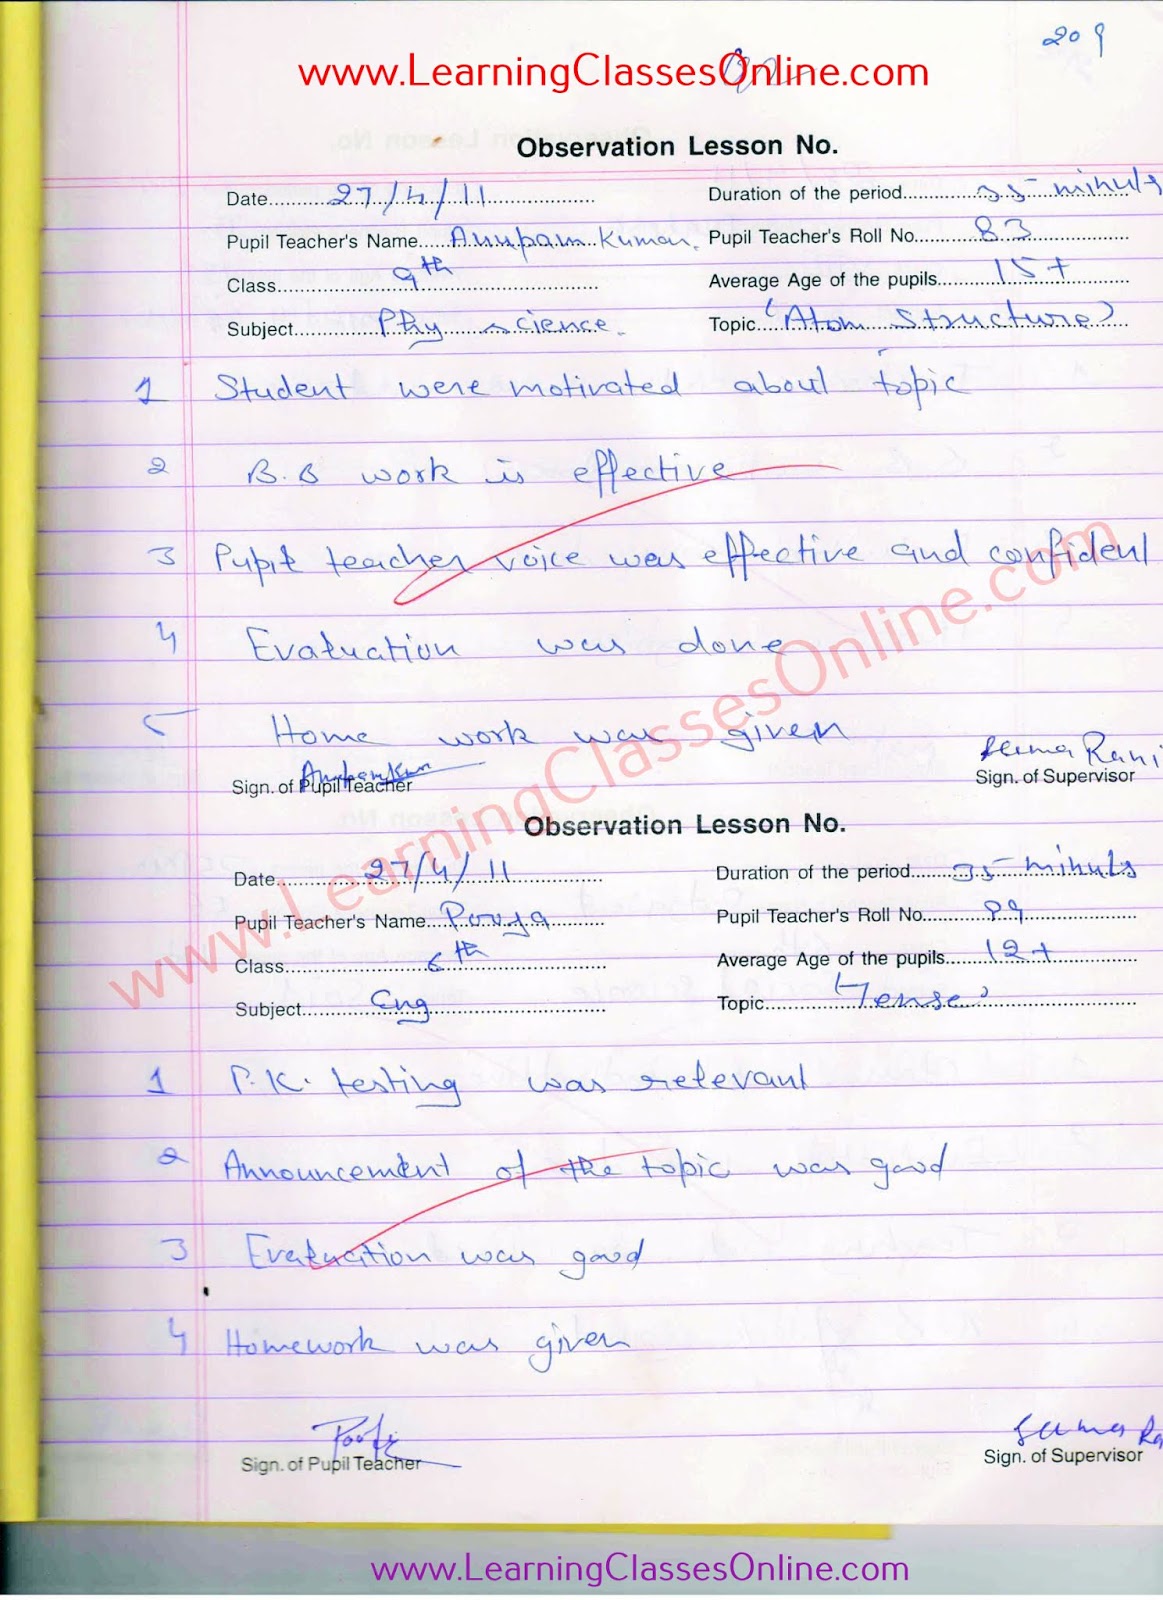 209
www.LearningClassesOnline.com
Observation Lesson No.
Date 27/4/11 Duration of the period 35 minuts
Pupil Teacher's Name Anupam Kumar. Pupil Teacher's Roll No. 83
Class 9th Average Age of the pupils 15+
Subject Phy science. Topic (Atom Structure)
1 Student were motivated about topic
2 B.B work is effective
3 Pupil teacher voice was effective and confident
4 Evaluation was done
5 Home work was given
Seema Rani
Sign. of Pupil Teacher Sign. of Supervisor
www.LearningClassesOnline.com
Observation Lesson No.
Date 27/4/11 Duration of the period 35 minuts
Pupil Teacher's Name Pooja Pupil Teacher's Roll No. 89
Class 6th Average Age of the pupils 12+
Subject Eng Topic 'Tense'
1 P.K. testing was relevant
2 Announcement of the topic was good
3 Evaluation was good
4 Homework was given
Sign. of Pupil Teacher Sign. of Supervisor
www.LearningClassesOnline.com